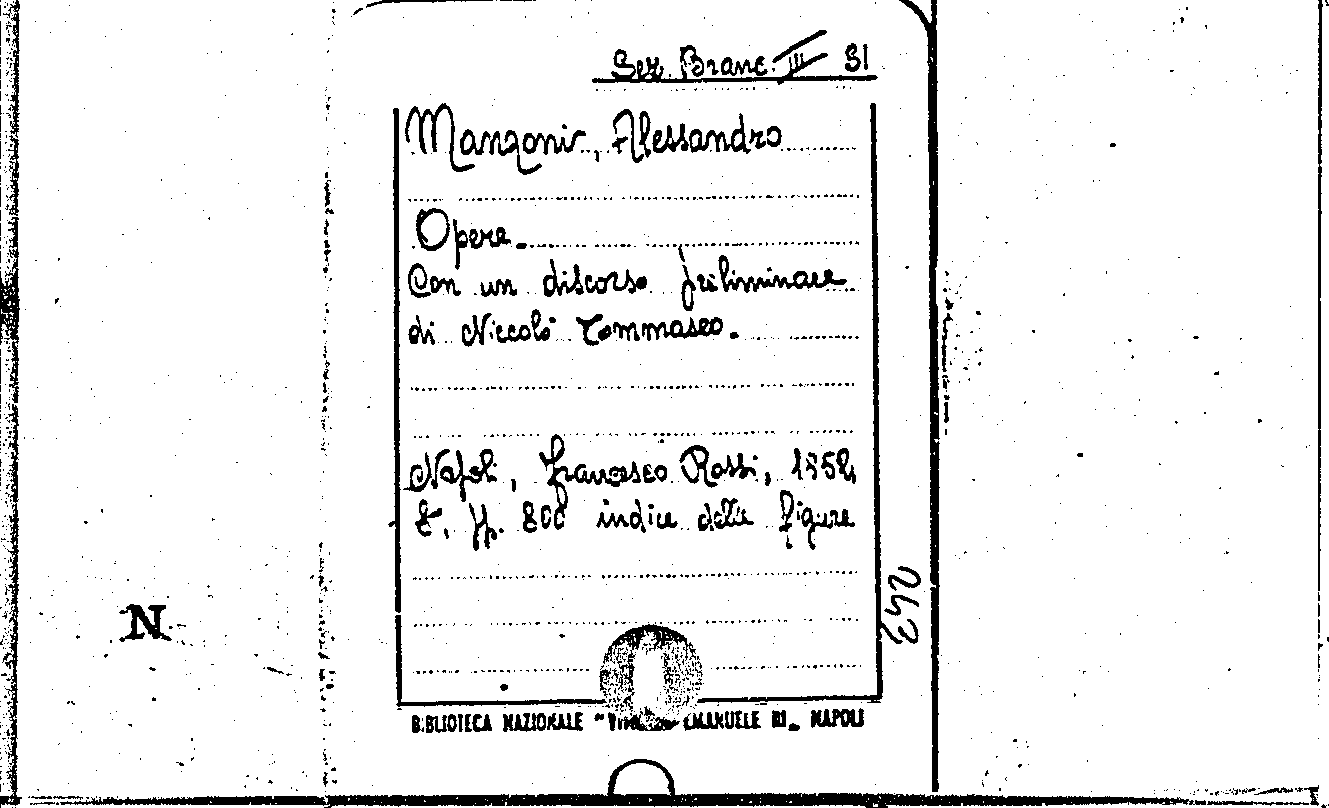 Sez. Branc. III 31
Manzoni, Alessandro
Opere.
Con un discorso preliminare
di Niccolò Tommaseo.
Napoli, Francesco Rossi, 1852,
8. pp. 800 indice delle figure
243
N
BIBLIOTECA NAZIONALE " EMANUELE III„ NAPOLI